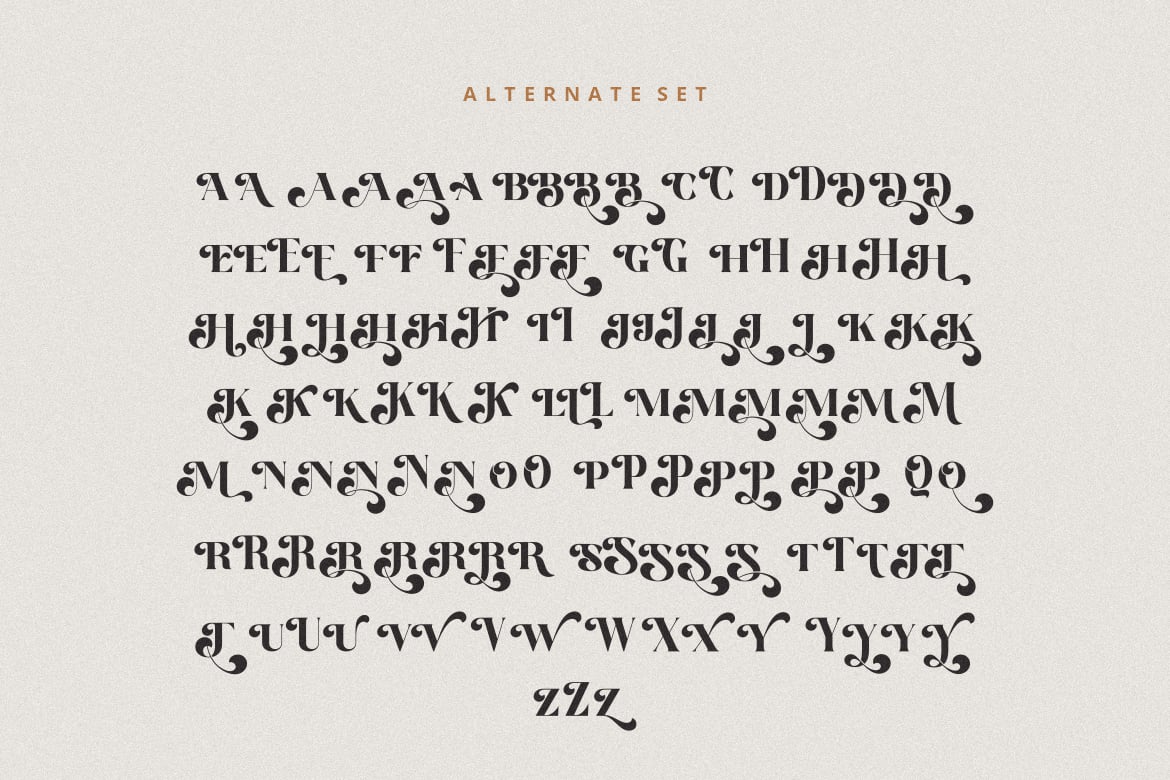 ALTERNATE SET
AA AAAA BBBB CC DDDDD
EEEE FFFFFF GG HHHHH
HHHHHH II JJJJJ J K KK
K KKKKK LLL MMMMMM
M NNNNN OO PPPPP PP QO
RRRR RRRR SSSS S TTTTT
T UUU VVVWWXXY YYYY
ZZZ